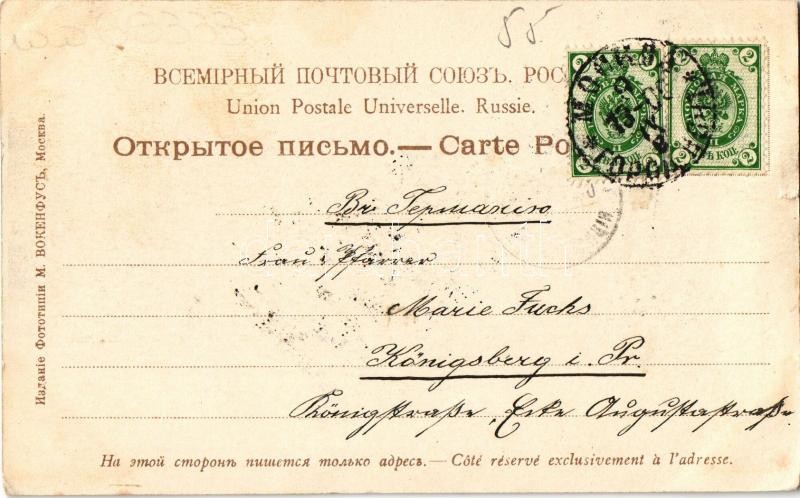 55
ВСЕМІРНЫЙ ПОЧТОВЫЙ СОЮЗЪ. РОС
Union Postale Universelle. Russie.
Открытое письмо.—Carte Po
2 2
2 2
Въ Германію
Frau Pfarrer
Marie Fuchs
Königsberg i. Pr.
Königstraße, Ecke Augustastraße.
На этой сторонѣ пишется только адресъ.—Côté réservé exclusivement à l'adresse.
Изданіе Фототипіи М. ВОКЕНФУСЪ, Москва.